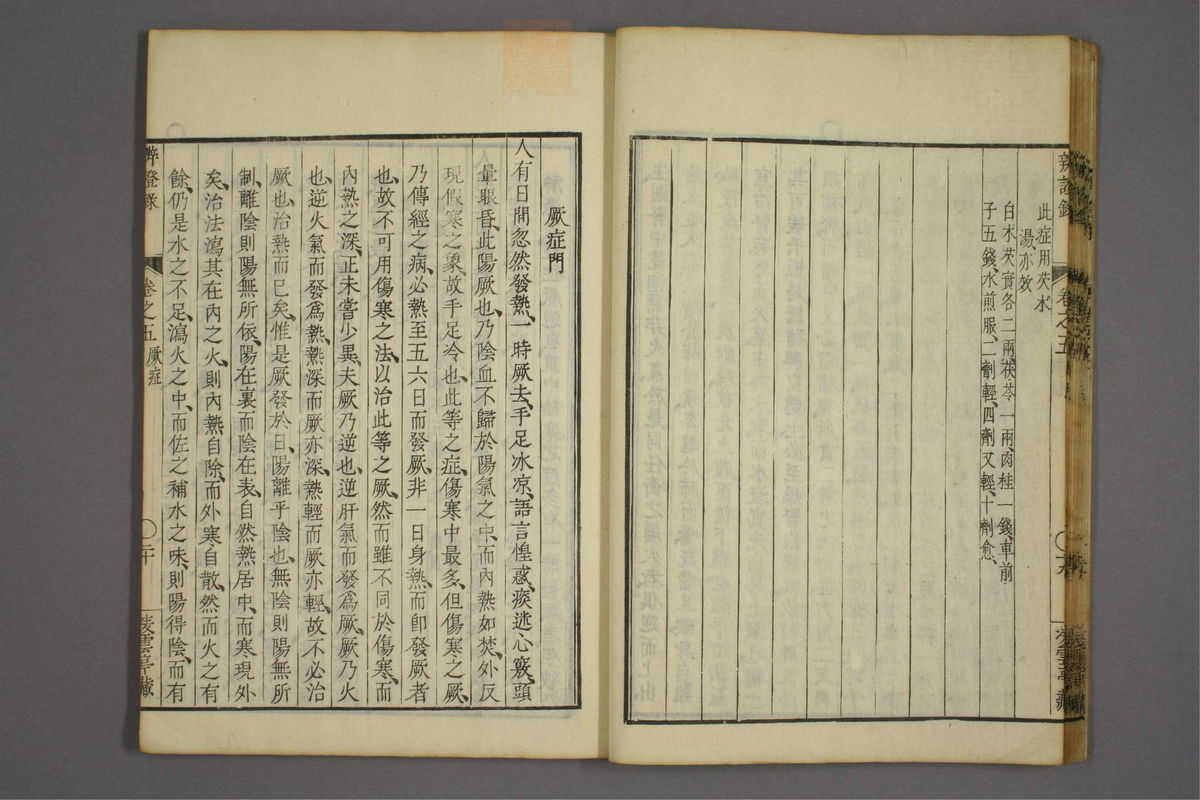 此症用芡水
湯亦效
白朮芡實各二兩茯苓一兩肉桂一錢車前
子五錢水煎服二劑輕四劑又輕十劑愈
卷之五
厥症門
人有日間忽然發熱一時厥去手足冰凉語言惶惑痰迷心竅頭
暈眼昏此陽厥也乃陰血不歸於陽氣之中而內熱如焚外反
現假寒之象故手足冷也此等之症傷寒中最多但傷寒之厥
乃傳經之病必熱至五六日而發厥非一日身熱而卽發厥者
也故不可用傷寒之法以治此等之厥然而雖不同於傷寒而
內熱之深正未嘗少異夫厥乃逆也逆肝氣而發爲厥厥乃火
也逆火氣而發爲熱熱深而厥亦深熱輕而厥亦輕故不必治
厥也治熱而已矣惟是厥發於日陽離乎陰也無陰則陽無所
制離陰則陽無所依陽在裏而陰在表自然熱居中而寒現外
矣治法瀉其在內之火則內熱自除而外寒自散然而火之有
餘仍是水之不足瀉火之中而佐之補水之味則陽得陰而有
辨證錄 卷之五 厥症 二十 凌雲亭藏